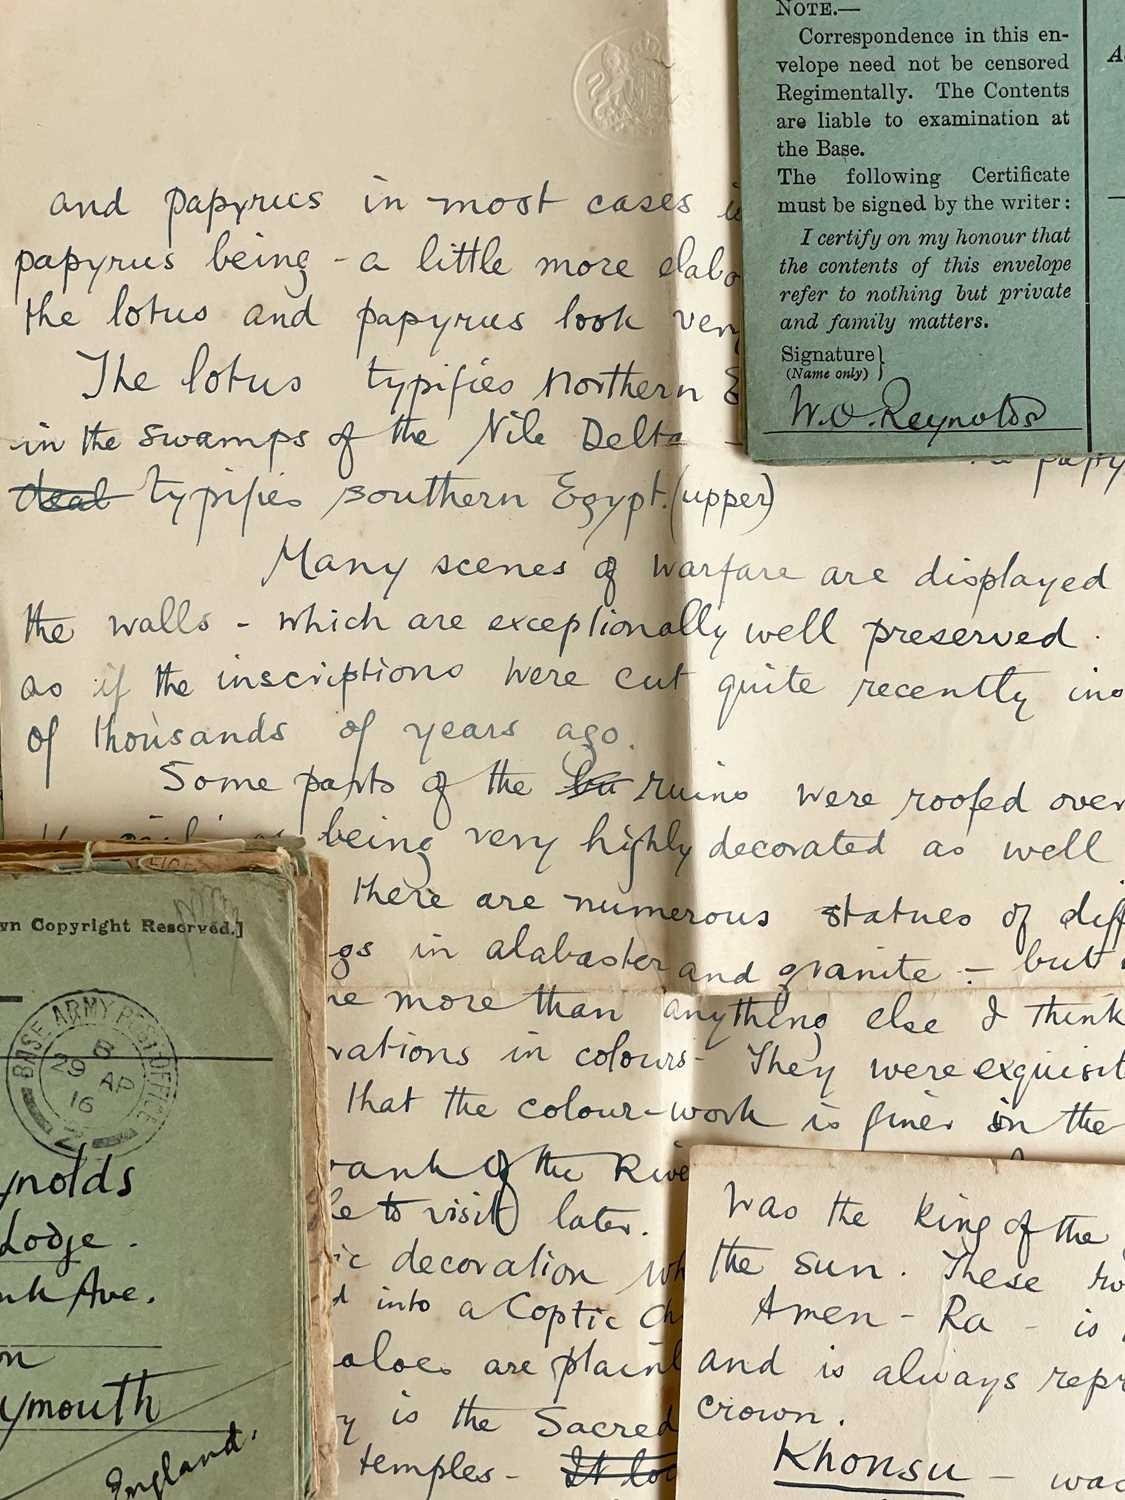 and papyrus in most cases
papyrus being - a little more elabo
the lotus and papyrus look very
The lotus typifies Northern E
in the swamps of the Nile Delta -
deal typifies southern Egypt. (upper)
Many scenes of warfare are displayed
the walls - which are exceptionally well preserved.
as if the inscriptions were cut quite recently ins
of thousands of years ago.
Some parts of the bu ruins were roofed over
being very highly decorated as well
there are numerous statues of diff
gs in alabaster and granite - but
me more than anything else I think
rations in colours - They were exquisit
that the colour-work is finer in the
bank of the Rive
le to visit later.
ic decoration wh
d into a Coptic Ch
aloes are plainl
y is the Sacred
temples - It loo
NOTE.—
Correspondence in this en-
velope need not be censored
Regimentally. The Contents
are liable to examination at
the Base.
The following Certificate
must be signed by the writer:
I certify on my honour that
the contents of this envelope
refer to nothing but private
and family matters.
Signature}
(Name only)
W.O. Reynolds
papy
wn Copyright Reserved.]
BASE ARMY POST OFFICE
29 AP
16
2
ynolds
Lodge.
nk Ave.
on
ymouth
England.
was the king of the
the sun. These tw
Amen-Ra - is
and is always repr
crown.
Khonsu - was